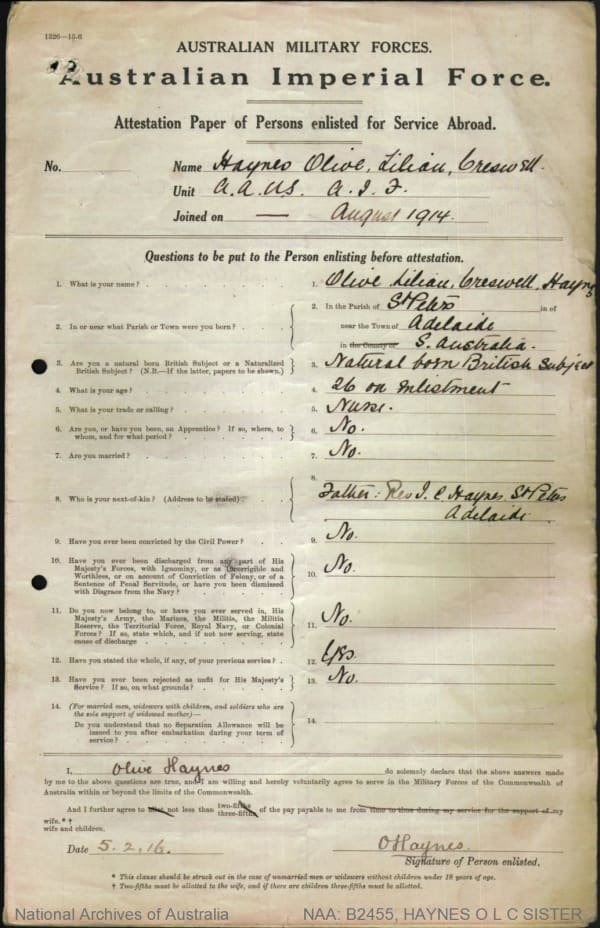 1320—15-6
AUSTRALIAN MILITARY FORCES.
Australian Imperial Force.
Attestation Paper of Persons enlisted for Service Abroad.
No. Name Haynes Olive, Lilian, Creswell.
Unit A.A.N.S. A.I.F.
Joined on — August 1914.
Questions to be put to the Person enlisting before attestation.
1. What is your name? 1. Olive Lilian, Creswell, Haynes
2. In or near what Parish or Town were you born? 2. In the Parish of St Peters in or
near the Town of Adelaide
in the County of S. Australia.
3. Are you a natural born British Subject or a Naturalized
British Subject? (N.B.—If the latter, papers to be shown.) 3. Natural born British Subject
4. What is your age? 4. 26 on enlistment
5. What is your trade or calling? 5. Nurse.
6. Are you, or have you been, an Apprentice? If so, where, to
whom, and for what period? 6. No.
7. Are you married? 7. No.
8. Who is your next-of-kin? (Address to be stated) 8. Father: Rev J. C Haynes St Peters
Adelaide
9. Have you ever been convicted by the Civil Power? 9. No.
10. Have you ever been discharged from any part of His
Majesty's Forces, with Ignominy, or as Incorrigible and
Worthless, or on account of Conviction of Felony, or of a
Sentence of Penal Servitude, or have you been dismissed
with Disgrace from the Navy? 10. No.
11. Do you now belong to, or have you ever served in, His
Majesty's Army, the Marines, the Militia, the Militia
Reserve, the Territorial Force, Royal Navy, or Colonial
Forces? If so, state which, and if not now serving, state
cause of discharge 11. No.
12. Have you stated the whole, if any, of your previous service? 12. Yes.
13. Have you ever been rejected as unfit for His Majesty's
Service? If so, on what grounds? 13. No.
14. (For married men, widowers with children, and soldiers who are
the sole support of widowed mother)—
Do you understand that no Separation Allowance will be
issued to you after embarkation during your term of
service? 14.
I, Olive Haynes do solemnly declare that the above answers made
by me to the above questions are true, and I am willing and hereby voluntarily agree to serve in the Military Forces of the Commonwealth of
Australia within or beyond the limits of the Commonwealth.
And I further agree to allot not less than two-fifths three-fifths of the pay payable to me from time to time during my service for the support of my
wife.*†
wife and children.
Date 5.2.16. OHaynes.
Signature of Person enlisted.
* This clause should be struck out in the case of unmarried men or widowers without children under 18 years of age.
† Two-fifths must be allotted to the wife, and if there are children three-fifths must be allotted.
National Archives of Australia NAA: B2455, HAYNES O L C SISTER